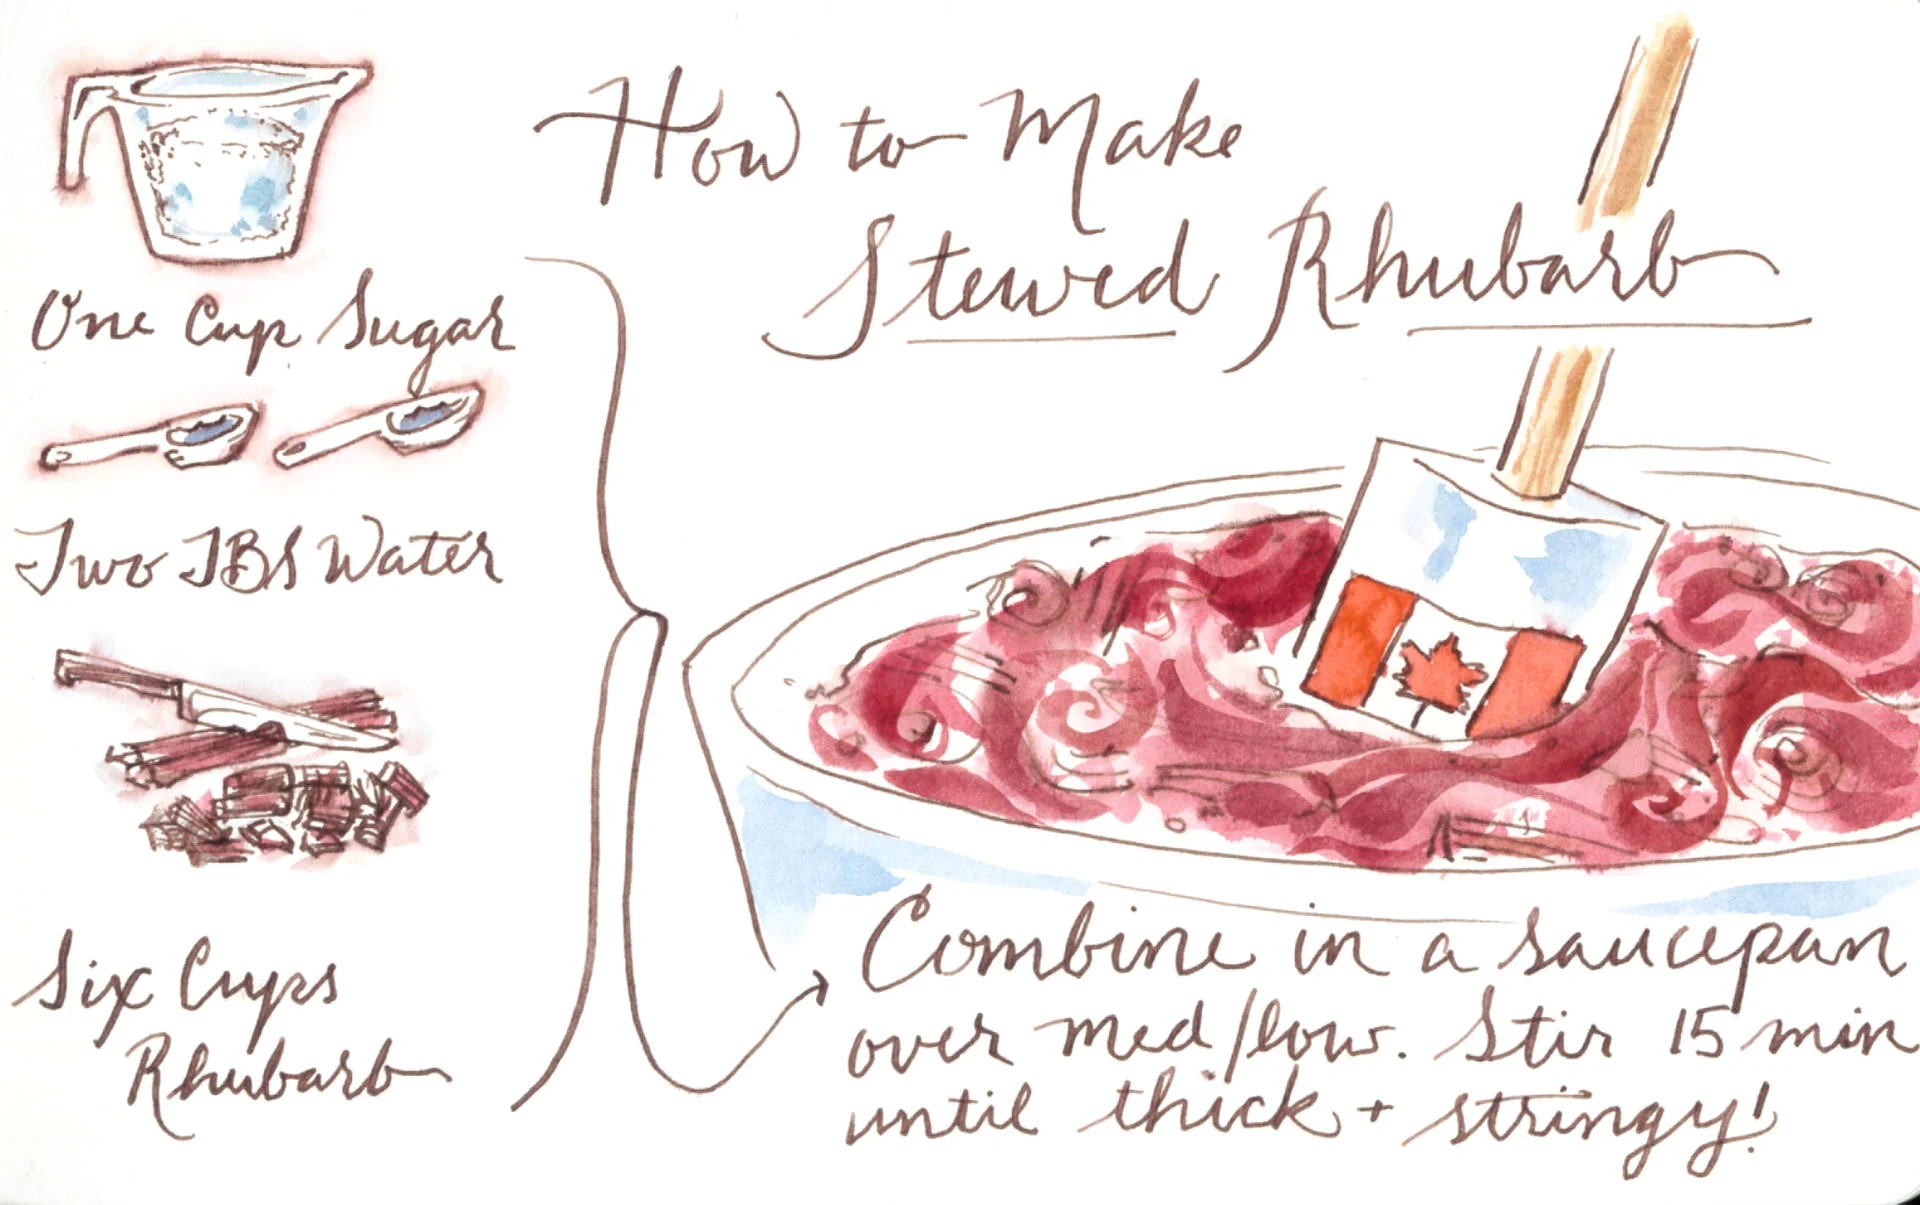 How to Make
Stewed Rhubarb
One Cup Sugar
Two TBS Water
Six Cups
Rhubarb
Combine in a saucepan
over med/low. Stir 15 min
until thick + stringy!